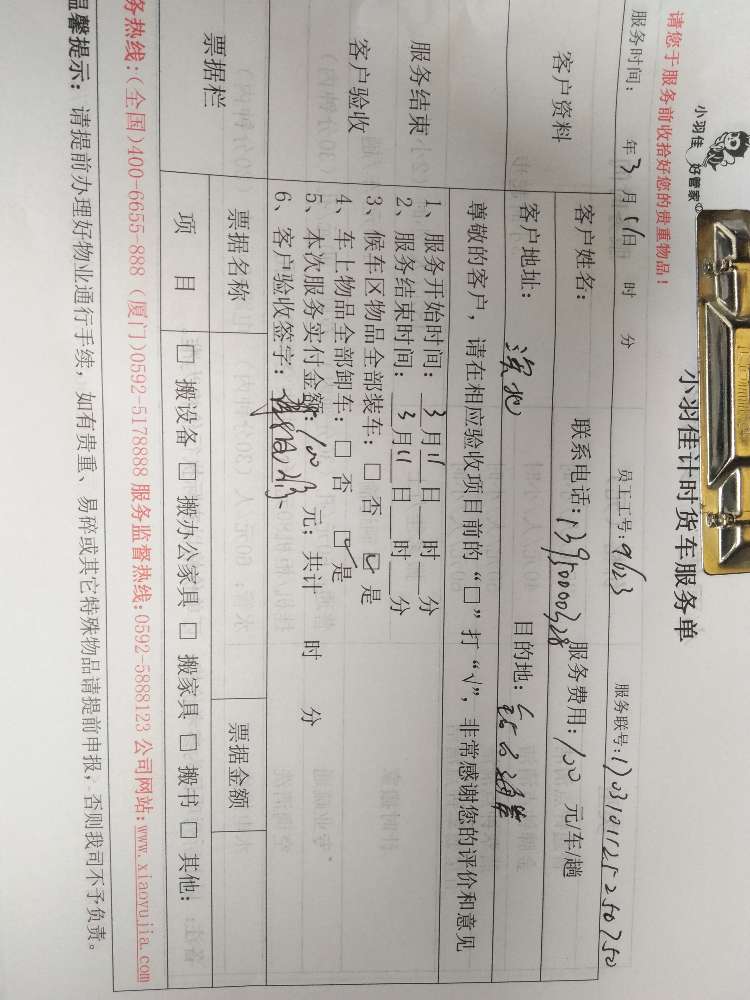 小羽佳 好管家
小羽佳计时货车服务单
请您于服务前收拾好您的贵重物品！
服务时间： 年3月11日 时 分 员工工号：9623 服务联号：1703101125250750
客户资料
客户姓名： 联系电话：13950000328 服务费用：100 元/车/趟
客户地址：滨北 目的地：
尊敬的客户，请在相应验收项目前的“□”打“√”，非常感谢您的评价和意见
服务结束
客户验收
1、服务开始时间：3月11日 时 分
2、服务结束时间：3月11日 时 分
3、候车区物品全部装车：□ 否 ☑ 是
4、车上物品全部卸车：□ 否 ☑ 是
5、本次服务实付金额：100 元；共计 时 分
6、客户验收签字：
票据栏
票据名称 票据金额
项 目 □ 搬设备 □ 搬办公家具 □ 搬家具 □ 搬书 □ 其他：
务热线：(全国)400-6655-888 (厦门)0592-5178888 服务监督热线:0592-5888123 公司网站:www.xiaoyujia.com
温馨提示：请提前办理好物业通行手续，如有贵重、易碎或其它特殊物品请提前申报，否则我司不予负责。